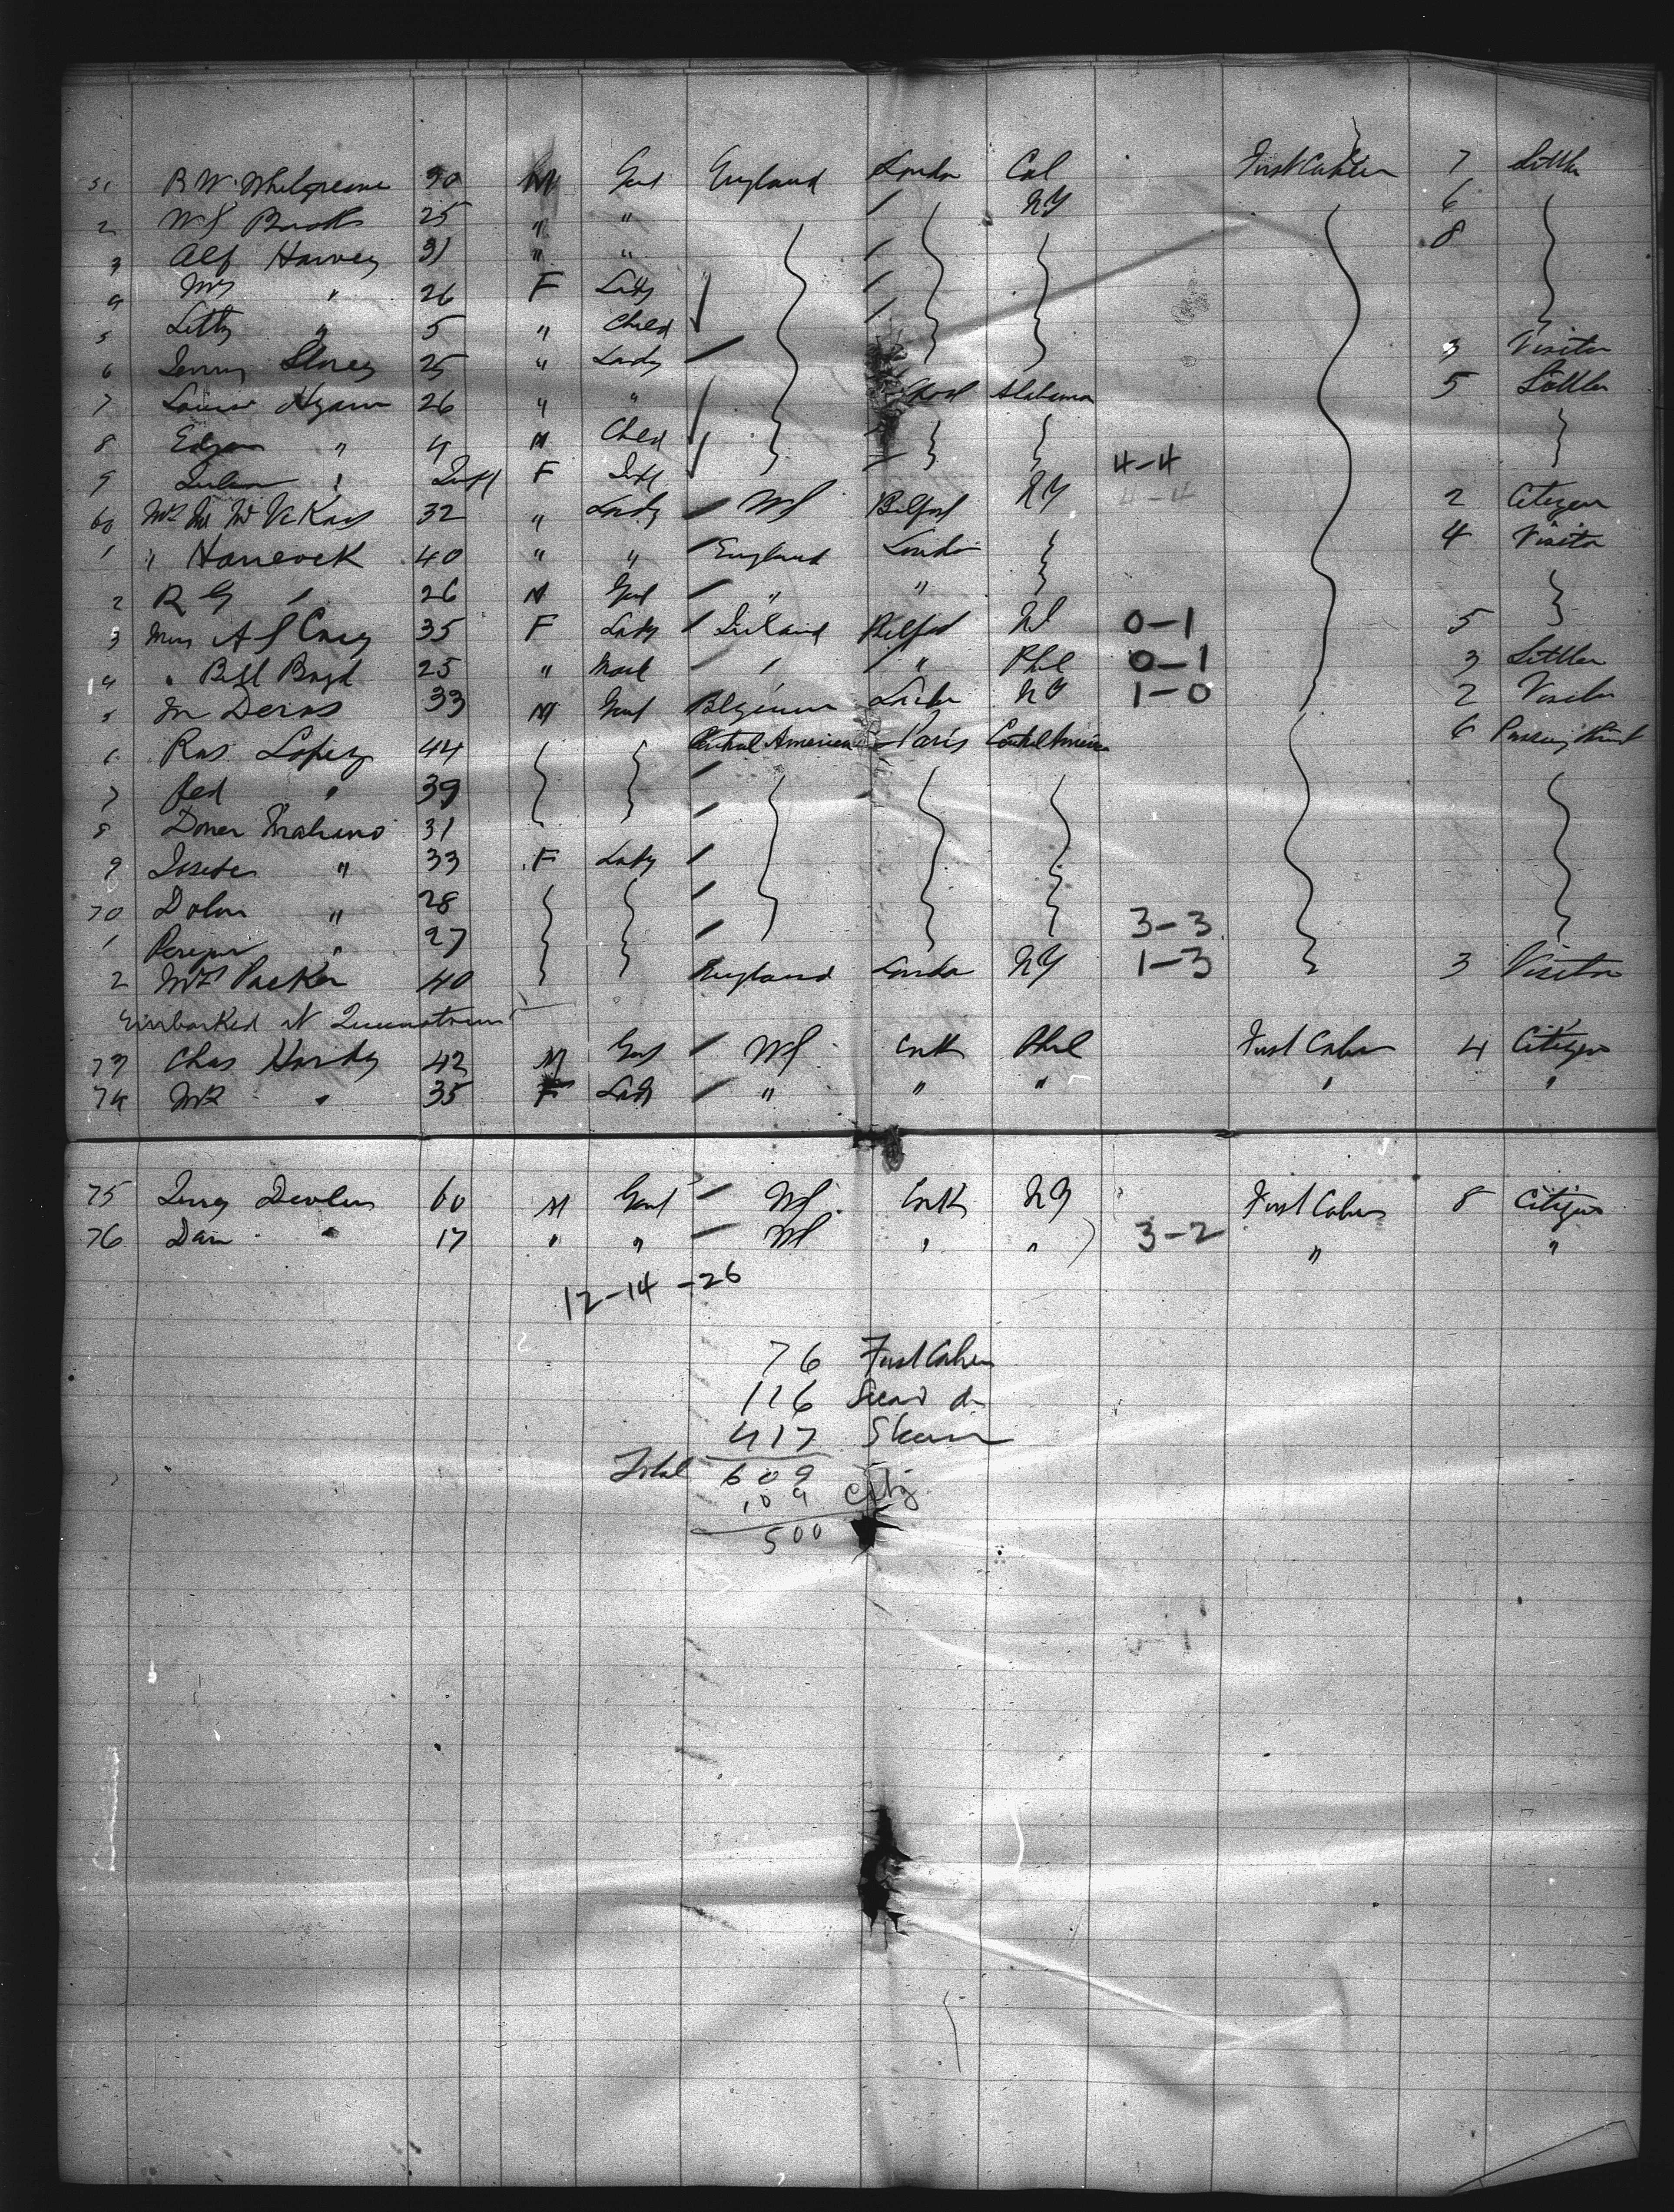 51 R W Whelgreene 30 M Gent England London Cal First Cabin 7 Settler
2 W J 25 " " / NY 6
3 Alf Harvey 31 " " / 8
4 Mrs " 26 F Lady /
5 Letty " 5 " Child /
6 Jenny Storey 25 " Lady 3 Visitor
7 Louise Hyam 26 " " L'pool Alabama 5 Settler
8 Edgar " 4 M Child
9 " Inft F Inft 4-4
60 Mrs 32 " Lady US Belfast NY 4-4 2 Citizen
1 " Hancock 40 " " England London 4 Visitor
2 R G " 26 M Gent " "
3 Miss A J Craig 35 F Lady Ireland Belfast 0-1 5
4 " Bell Boyd 25 " Maid " " Phil 0-1 3 Settler
5 M Derks 33 M Gent Belgium London NY 1-0 2 Visitor
6 Ras. Lopez 44 Central America Paris Central America 6 Passing thro
7 Fed " 39
8 31
9 " 33 F Lady
70 " 28
1 " 27 3-3
2 Mrs Packer 40 England London NY 1-3 3 Visitor
Embarked at Queenstown
73 Chas Hardy 42 M Gent US Cork Phil First Cabin 4 Citizen
74 Mrs " 35 F Lady " " " " "
75 Devlin 60 M Gent US Cork NY First Cabin 8 Citizen
76 Dan " 17 " " US " " 3-2 " "
12-14-26
76 First Cabin
116 Second do
417 Steer
Total 609
109 City
500